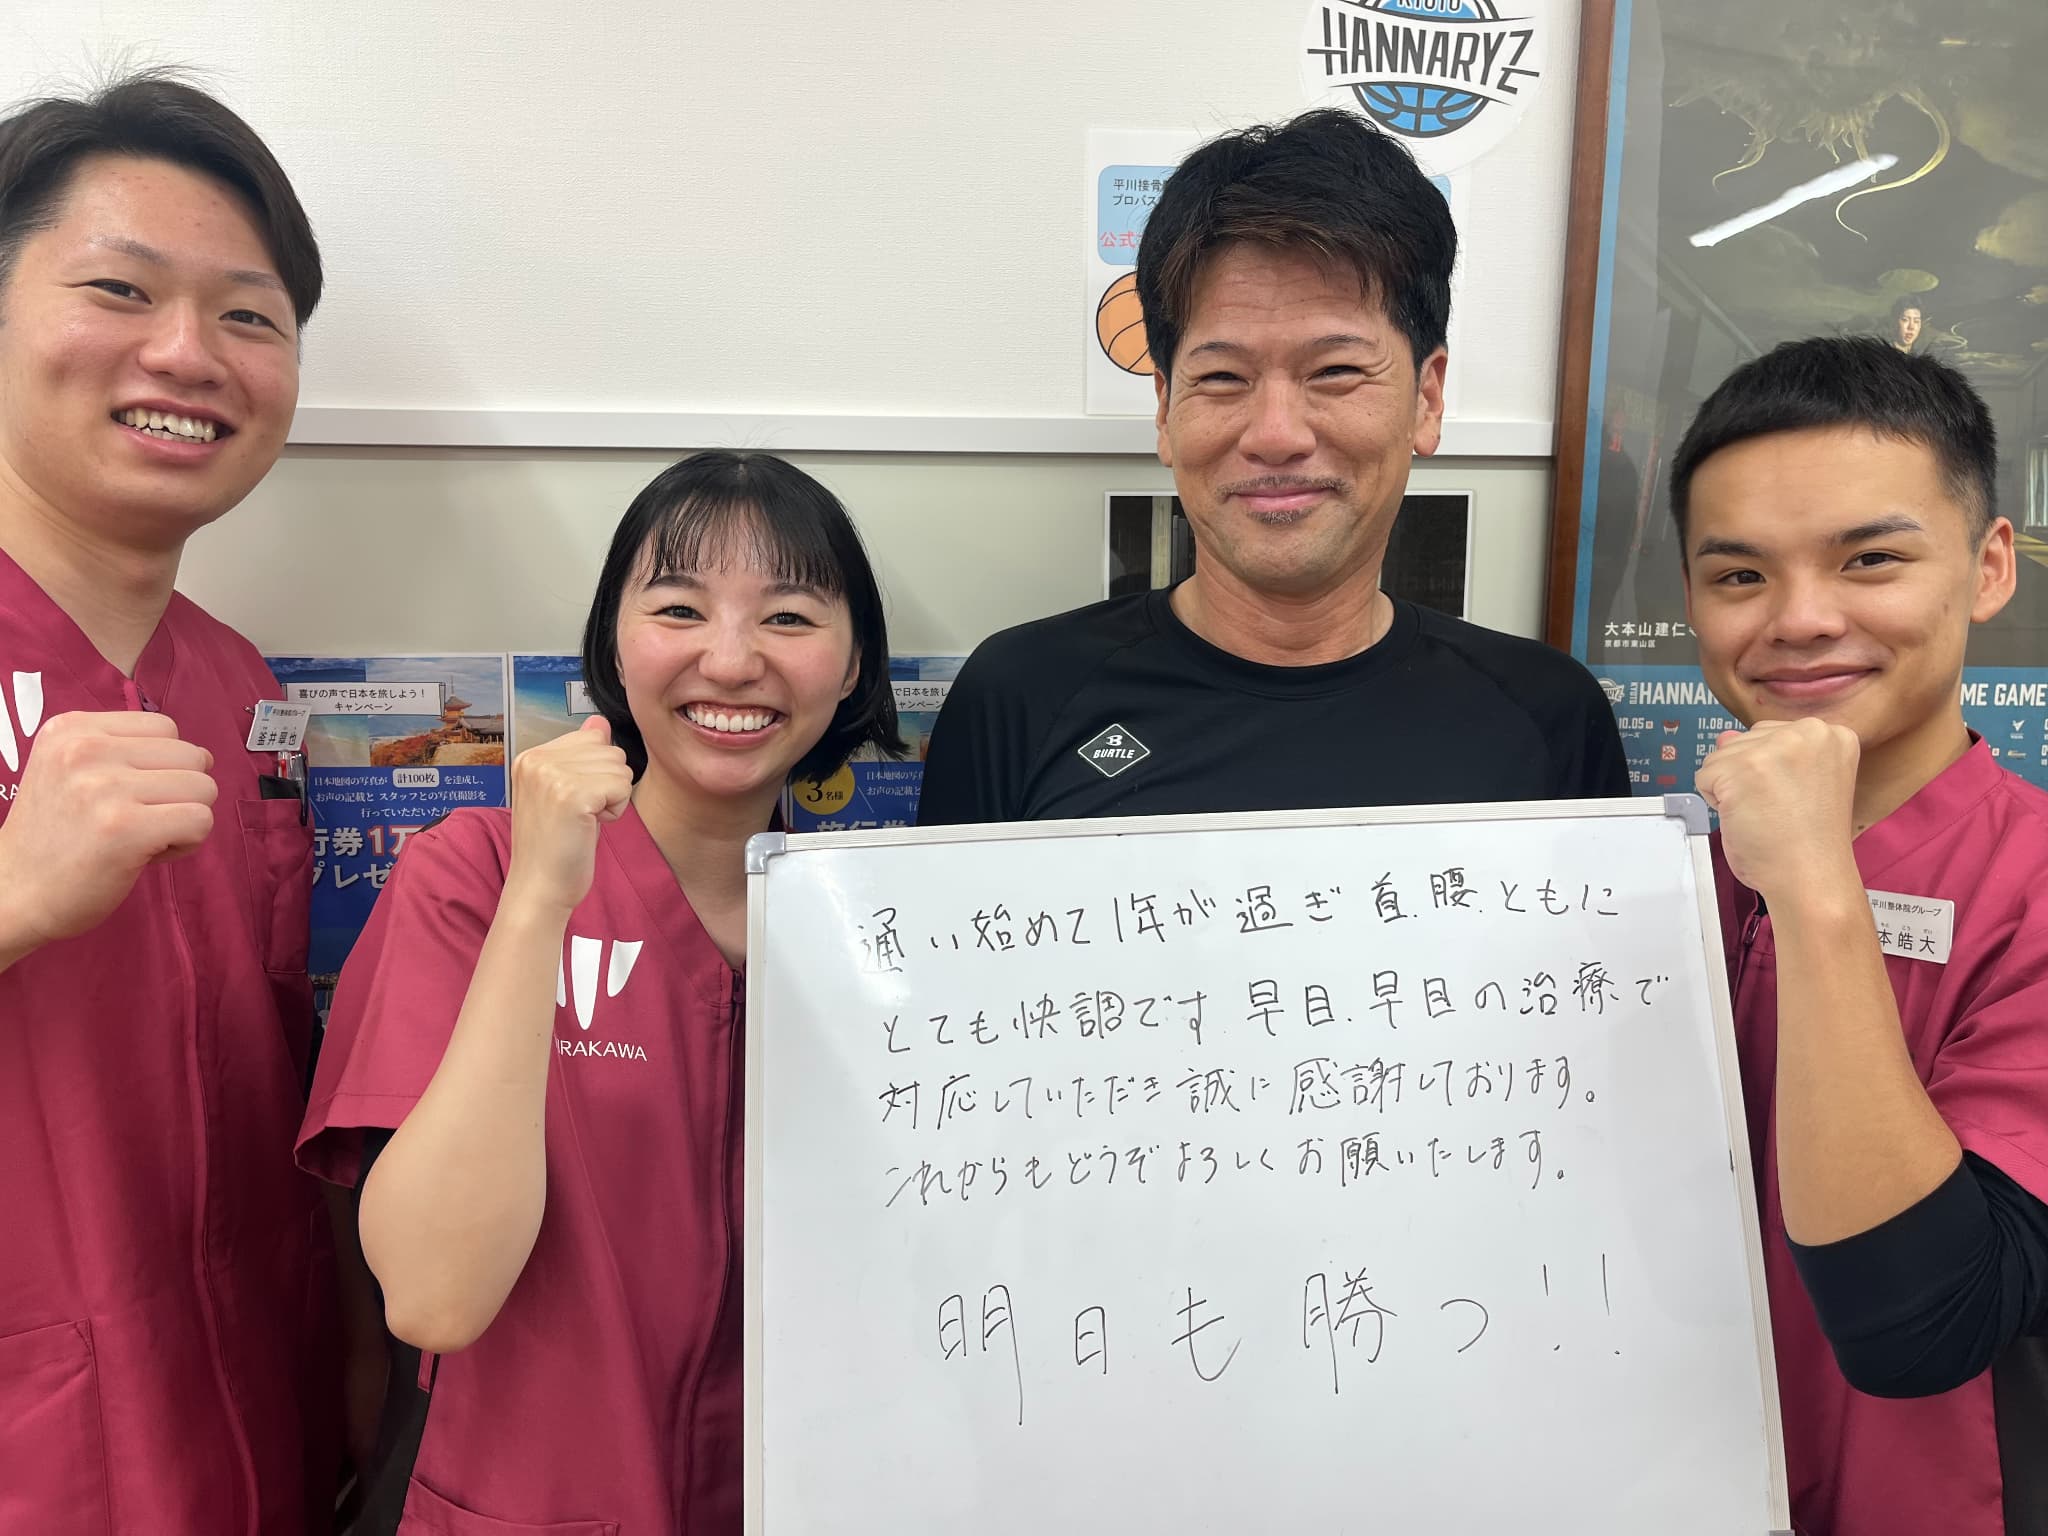 KYOTO
HANNARYZ
平川接骨
プロバス
公式
大本山建仁
京都市東山区
HANNAR
ME GAME
10.05
11.08
喜びの声で日本を旅しよう！
キャンペーン
日本地図の写真が 計100枚 を達成し、
お声の記載と スタッフとの写真撮影を
行っていただいた方
行券1万
プレゼ
で日本を旅し
ペーン
3名様
日本地図の写真
お声の記載
平川整体院グループ
BURTLE
IRAKAWA
平川整体院グループ
本 皓 大
通い始めて1年が過ぎ首.腰.ともに
とても快調です.早目.早目の治療で
対応していただき誠に感謝しております。
これからもどうぞよろしくお願いいたします。
明日も勝つ!!